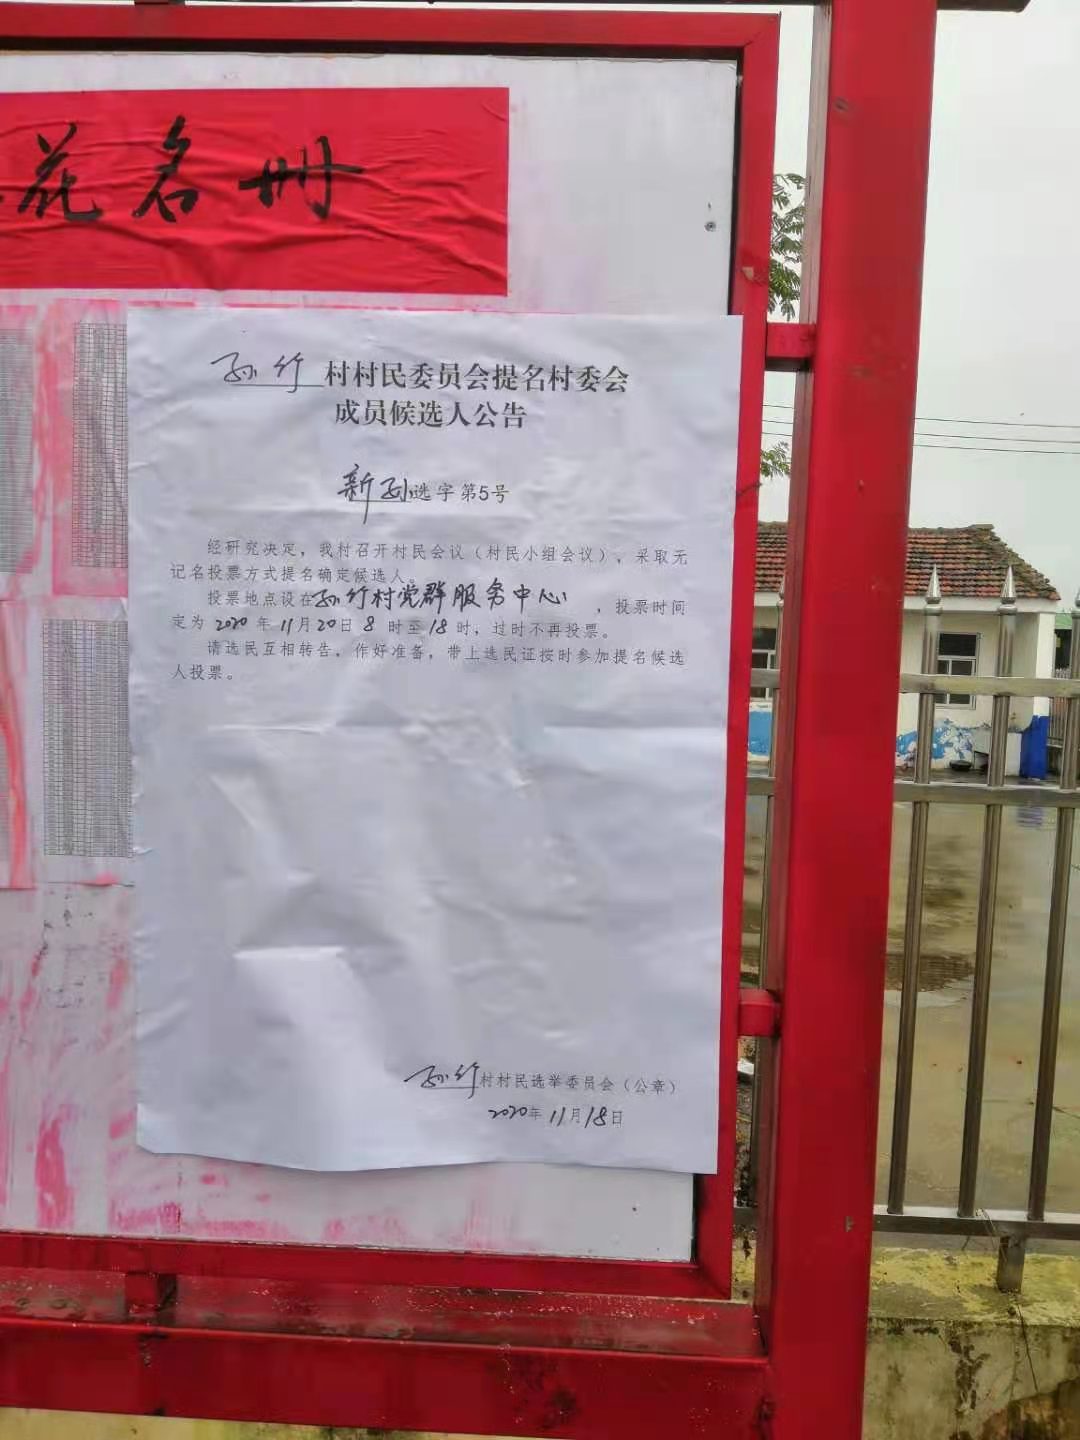 花名册
孙竹村村民委员会提名村委会
成员候选人公告
新孙选字第5号
经研究决定，我村召开村民会议（村民小组会议），采取无
记名投票方式提名确定候选人。
投票地点设在孙竹村党群服务中心，投票时间
定为2020年11月20日8时至18时，过时不再投票。
请选民互相转告，作好准备，带上选民证按时参加提名候选
人投票。
孙竹村村民选举委员会（公章）
2020年11月18日